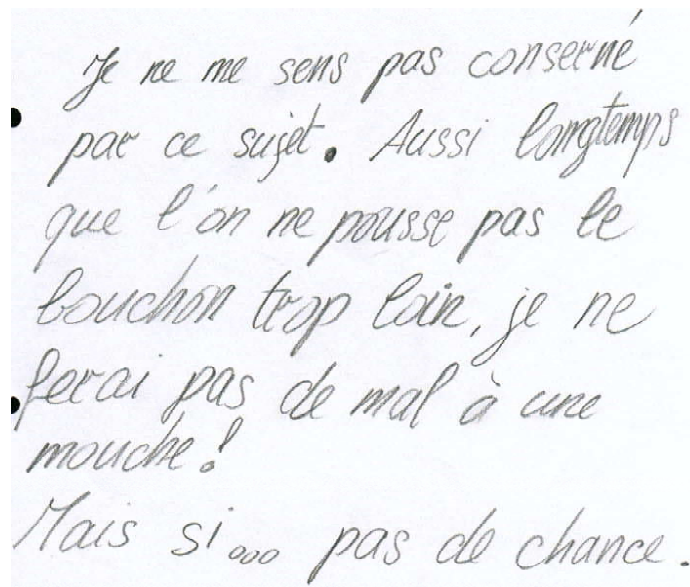 Je ne me sens pas conserné
par ce sujet. Aussi longtemps
que l'on ne pousse pas le
bouchon trop loin, je ne
ferai pas de mal à une
mouche!
Mais si... pas de chance.